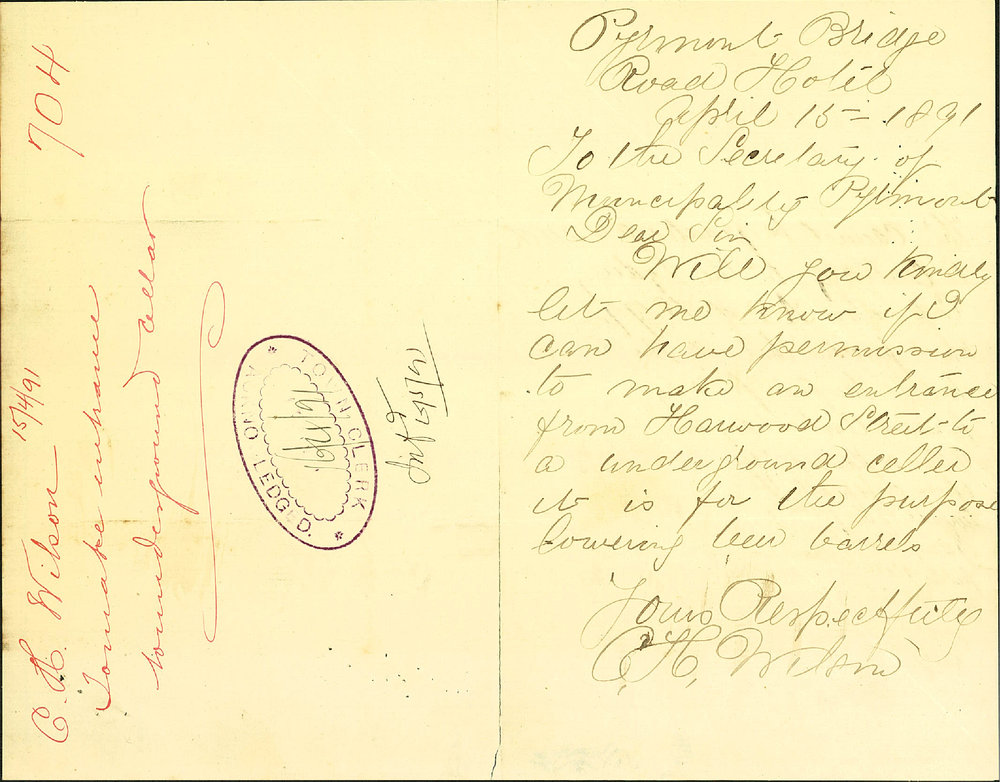 Pyrmont Bridge
Road Hotel
April 15 - 1891
To the Secretary of
Municipality Pyrmont
Dear Sir
Will you kindly
let me know if I
can have permission
to make an entrance
from Harwood Street to
a underground celler
it is for the purpose
lowering beer barrels
Yours Respectfully
C. H. Wilson
704
C. H. Wilson 15/4/91
To make entrance
to underground cellar
TOWN CLERK
16/4/91
LEDGD.